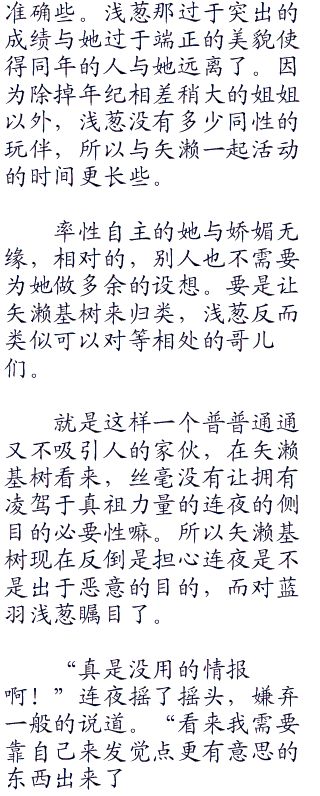 准确些。浅葱那过于突出的
成绩与她过于端正的美貌使
得同年的人与她远离了。因
为除掉年纪相差稍大的姐姐
以外，浅葱没有多少同性的
玩伴，所以与矢濑一起活动
的时间更长些。
率性自主的她与娇媚无
缘，相对的，别人也不需要
为她做多余的设想。要是让
矢濑基树来归类，浅葱反而
类似可以对等相处的哥儿
们。
就是这样一个普普通通
又不吸引人的家伙，在矢濑
基树看来，丝毫没有让拥有
凌驾于真祖力量的连夜的侧
目的必要性嘛。所以矢濑基
树现在反倒是担心连夜是不
是出于恶意的目的，而对蓝
羽浅葱瞩目了。
“真是没用的情报
啊！”连夜摇了摇头，嫌弃
一般的说道。“看来我需要
靠自己来发觉点更有意思的
东西出来了